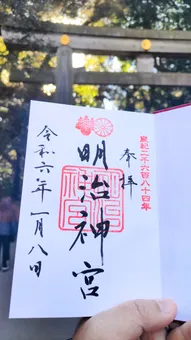 皇紀二千六百八十四年
奉拝
明治神宮
令和六年一月八日